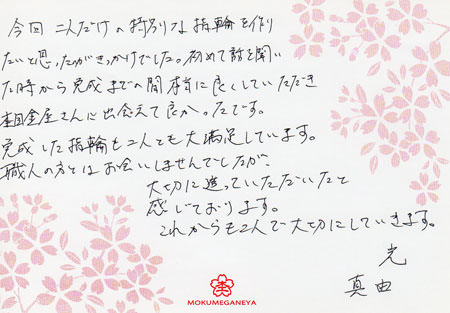 今回 二人だけの特別な指輪を作り
たいと思ったがきっかけでした。初めて話を聞い
た時から完成までの間本当に良くしていただき
杢目金屋さんに出会えて良かったです。
完成した指輪も二人とも大満足しています。
職人の方とはお会いしませんでしたが、
大切に造っていただいたと
感じております。
これからも2人で大切にしていきます。
光
真由
MOKUMEGANEYA